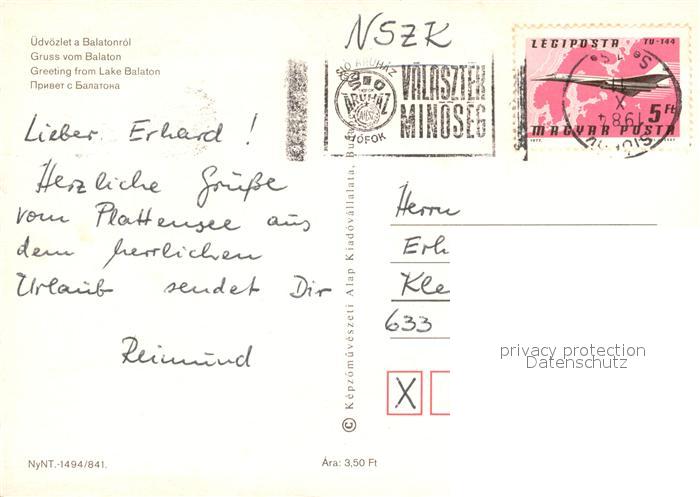 Üdvözlet a Balatonról
Gruss vom Balaton
Greeting from Lake Balaton
Привет с Балатона
NSZK
SIÓ ÁRUHÁZ
SIÓ
ÁRUHÁZ
SIÓFOK
VÁLASZTÉK
MINŐSÉG
LÉGIPOSTA TU-144
5 Ft
MAGYAR POSTA
1977
1984
X
Lieber Erhard !
Herzliche Grüße
vom Plattensee aus
dem herrlichen
Urlaub sendet Dir
Reimund
Herrn
Erh
Kle
633
X
privacy protection
Datenschutz
© Képzőművészeti Alap Kiadóvállalata, Buda
NyNT.-1494/841.
Ára: 3,50 Ft